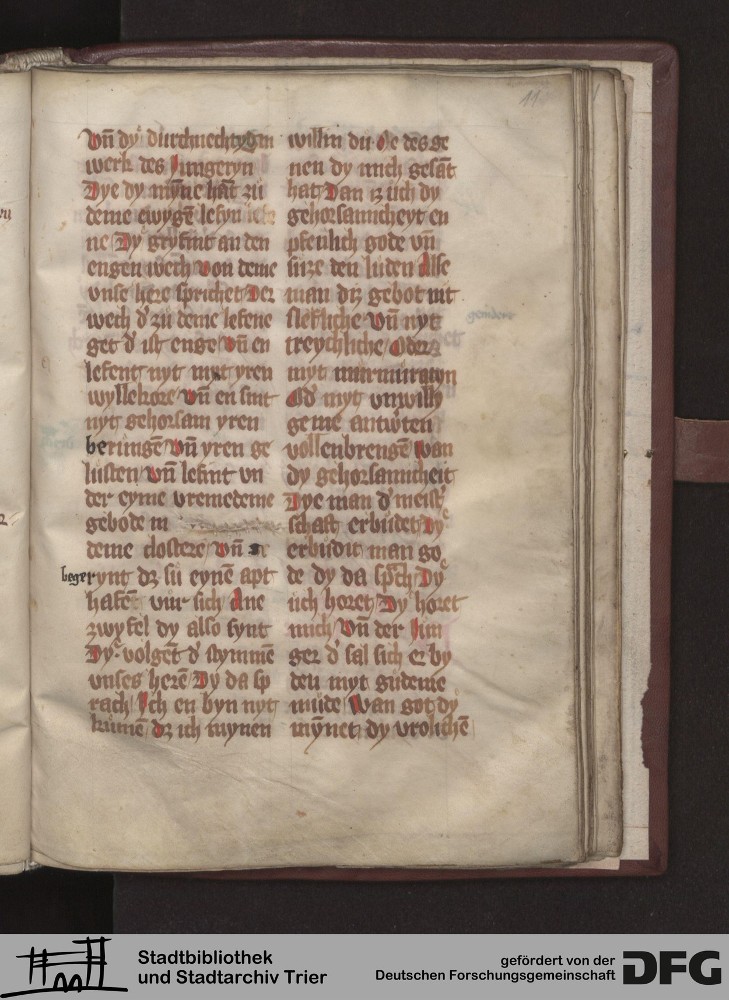 11
Vn̄ dy durchnechtygen
werk des Jungeryn
Dye dy mȳne hat zů
deme ewygē lefyn
ne Dy gryfint an den
engen wech Von deme
vnse here sprichet Der
wech d' zů deme lefene
get d' ist enge Vn̄ en
lefent nyt myt yren
wyllekore Vn̄ en sint
nyt gehorsam yren
berungē Vn̄ yren ge
lůsten Vn̄ lefint vn
der eyme vremedeme
gebode in
deme clostere Vn̄
begerynt dz sü eynē apt
hafē vůr sich Ane
zwyfel dy also synt
Dy volgēt d' stymmē
vnses herē Dy da sp
rach Jch en byn nyt
kumē dz ich mynen
willin dů Me des ge
nen dy mich gesāt
hat Dan iz ůch dy
gehorsamicheyt en
pfenlich gode vn̄
sůze den lůden Alse
man diz gebot nit
slefliche Vn̄ nyt
treychliche Oder
myt můrmůratyn
Od' myt vnwilly
geme antw'ten
vollenbrengē Wan
dy gehorsamicheit
Dye man d' meist'
schaft erbůdet Dy
erbůdit man go
de dy da sp̄ch Dy
ůch horet Dy horet
mich Vn̄ der Jun
ger d' sal sich er by
den myt gůdeme
můde Wan got dy
mȳnet dy vrolichē
Stadtbibliothek
und Stadtarchiv Trier
gefördert von der
Deutschen Forschungsgemeinschaft
DFG